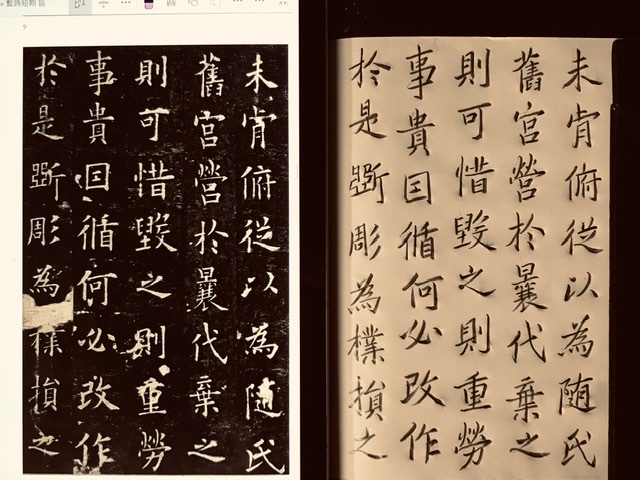 暫時短期區
9
未肯俯從以為随氏
舊宮營於曩代棄之
則可惜毀之則重勞
事貴因循何必改作
於是斲彫為樸損之
未肯俯從以為随氏
舊宮營於曩代棄之
則可惜毀之則重勞
事貴因循何必改作
於是斲彫為樸損之